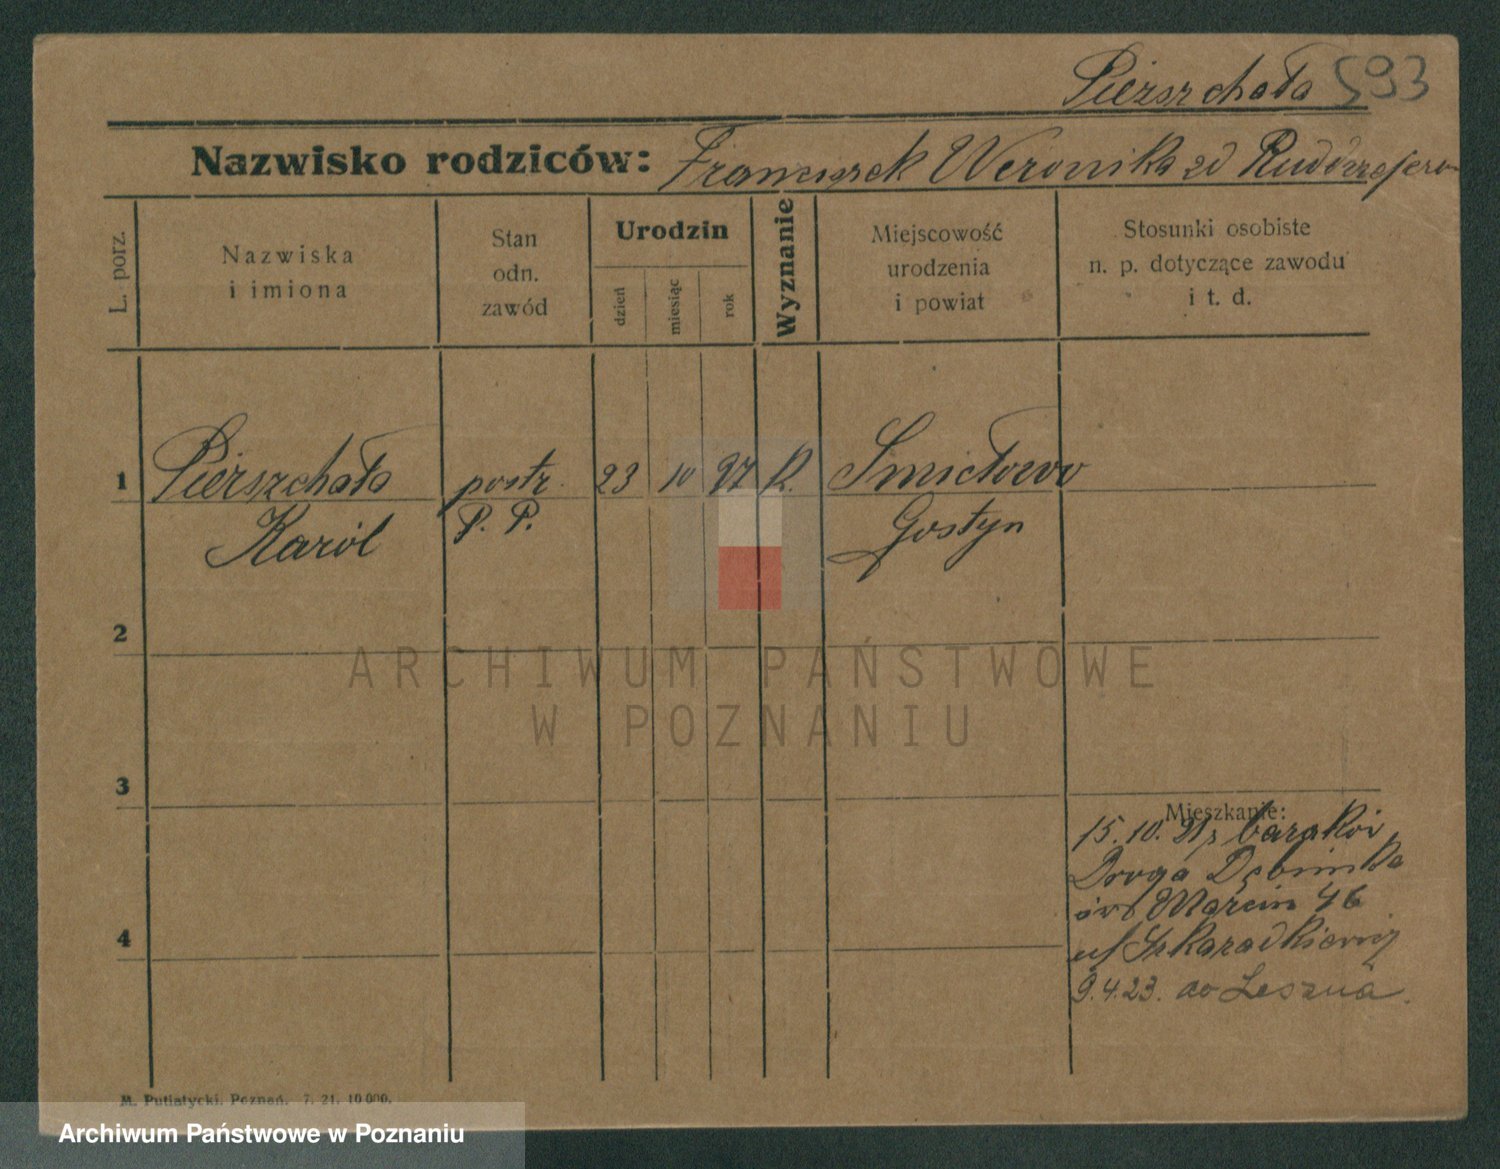 Pierszchała 593
Nazwisko rodziców: Franciszek Weronika zd
L. porz.
Nazwiska
i imiona
Stan
odn.
zawód
Urodzin
dzień
miesiąc
rok
Wyznanie
Miejscowość
urodzenia
i powiat
Stosunki osobiste
n. p. dotyczące zawodu
i t. d.
1 Pierszchała postr. 23 10 97 k. Smiełowo
Karól P. P. Gostyn
2
ARCHIWUM PAŃSTWOWE
W POZNANIU
3
Mieszkanie:
15.10.21 z baraków
Droga Dębinska
św Marcin 46
u/
9.4.23. do Leszna.
4
M. Putiatycki. Poznań. 7. 21. 10 000.
Archiwum Państwowe w Poznaniu